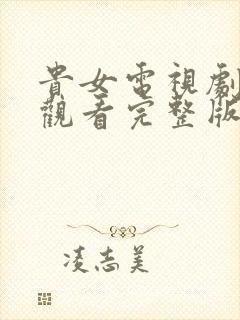 貴女電視劇
觀看完整版
凌志美